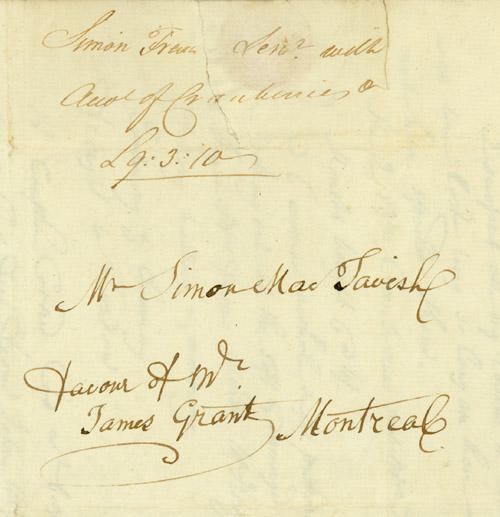 Simon Fraser Senr. with
Acct of Cranberries &
£9:3:10
Mr Simon Mac Tavish
Favour of Mr.
James Grant Montreal